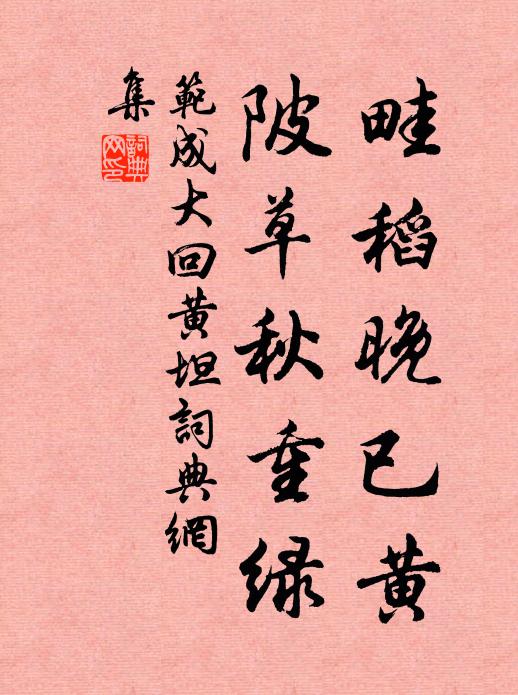 畦稻晚已黄
陂草秋重绿
範成大回黄坦詞典網
集
詞典
网印